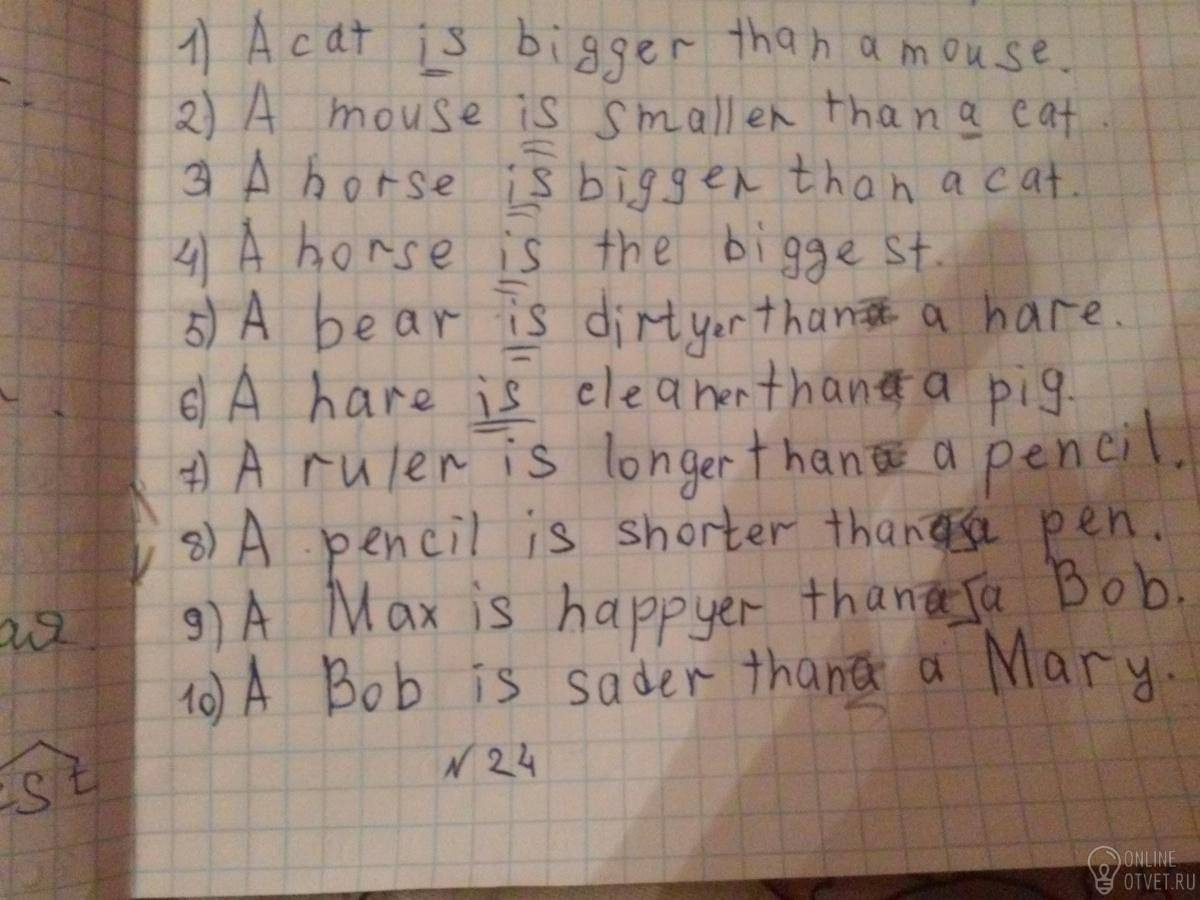 1) A cat is bigger than a mouse.
2) A mouse is smaller than a cat.
3) A horse is bigger than a cat.
4) A horse is the biggest.
5) A bear is dirtyer than a hare.
6) A hare is cleaner than a pig.
7) A ruler is longer than a pencil.
8) A pencil is shorter than a pen.
9) A Max is happyer than a Bob.
ая
10) A Bob is sader than a Mary.
№ 24
est
ONLINE
OTVET.RU